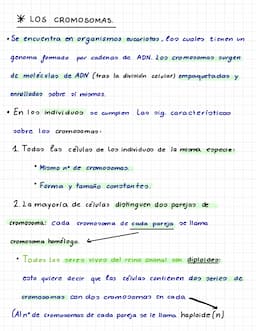 * LOS CROMOSOMAS.
• Se encuentra en organismos eucariotas, los cuales tienen un
genoma formado por cadenas de ADN. Los cromosomas surgen
de moléculas de ADN (tras la división celular) empaquetadas y
enrolladas sobre sí mismas.
• En los individuos se cumplen las sig. características
sobre los cromosomas:
1. Todas las células de los individuos de la misma especie:
• Mismo nº de cromosomas.
• Forma y tamaño constantes.
2. La mayoría de células distinguen dos parejas de
cromosoma: cada cromosoma de cada pareja se llama
cromosoma homólogo.
• Todos los seres vivos del reino animal son diploides:
esto quiere decir que las células contienen dos series de
cromosomas con dos cromosomas en cada
(Al nº de cromosomas de cada pareja se le llama haploide (n)